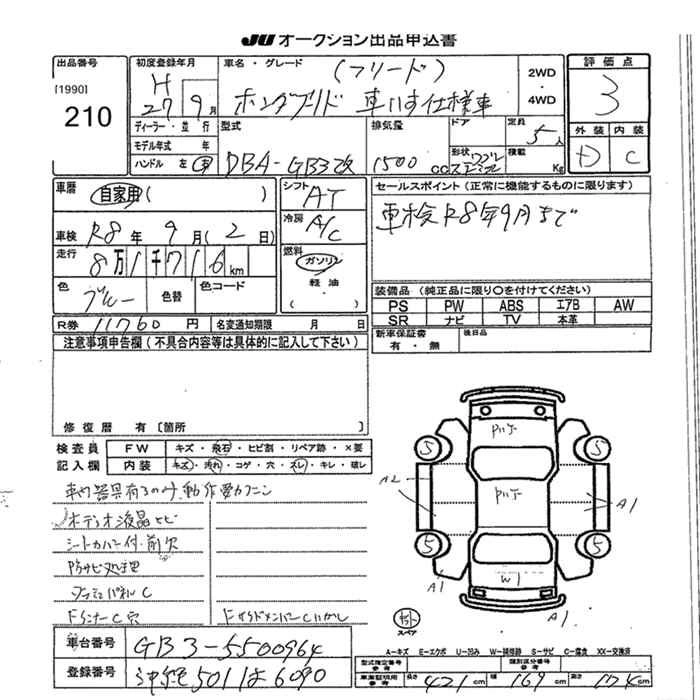 JU オークション出品申込書
出品番号 初度登録年月 車名・グレード (フリード) 2WD・4WD 評価点
[1990] 210 H 27年 9月 車いす仕様車 3
ディーラー・並行 型式 排気量 ドア 定員 5人 外装 内装
モデル年式 年 形状 積載 Kg D C
ハンドル 左 右 DBA-GB3改 1500cc
車歴 自家用( ) シフト AT セールスポイント(正常に機能するものに限ります)
車検 R8年 9月(2日) 冷房 A/C 車検R8年9月まで
走行 8万1千716km 燃料 ガソリン 軽油 ( )
色 ブルー 色替 色コード 装備品(純正品に限り○を付けてください)
PS PW ABS エアB AW
R券 11760円 名変通知期限 月 日 SR ナビ TV 本革
注意事項申告欄(不具合内容等は具体的に記入して下さい) 新車保証書 有・無 後日品
修復歴 有[箇所
検査員 FW キズ・飛石・ヒビ割・リペア跡・×要
記入欄 内装 キズ・汚れ・コゲ・穴・スレ・キレ・破レ
オーディオ液晶
シートカバー付・前欠
防サビ処理
C
Fインナー C穴 Fサイドメンバー C
5 5 5 5
A2 A1 A1 W1 A1
スペア
A-キズ E-エクボ U-凹み W-補修跡 S-サビ C-腐食 XX-交換済
車台番号 GB3-5500964 型式指定番号 参考 類別区分番号 参考
登録番号 沖縄501は6090 車庫証明用 参考 長さ 421cm 幅 169cm 高さ 172cm